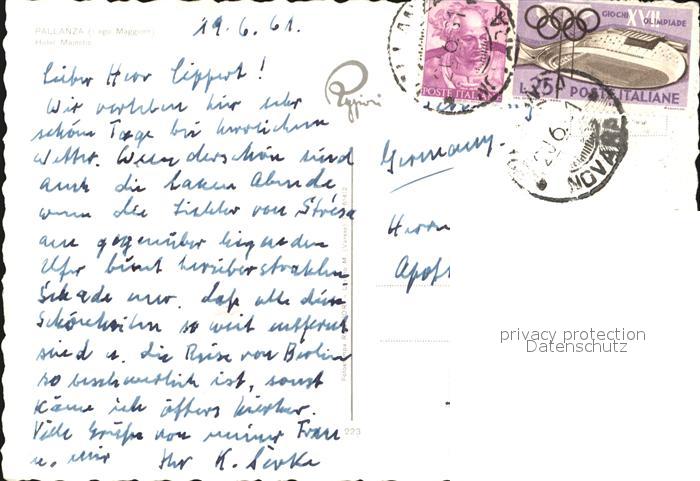 19.6.61.
PALLANZA (Lago Maggiore)
Hotel Majestic
Lieber Herr Lippert!
Wir verleben hier sehr
schöne Tage bei herrlichem
Wetter. Wunderschön sind
auch die lauen Abende
wenn die Lichter von Stresa
am gegenüber liegenden
Ufer bunt herüberstrahlen
Schade nur, daß alle diese
Schönheiten so weit entfernt
sind u. die Reise von Berlin
so beschwerlich ist, sonst
käme ich öfters hierher.
Viele Grüße von meiner Frau
u. mir Ihr K.
223
GIOCHI XVII OLIMPIADE
POSTE ITALIANE
L. 25
POSTE ITALIANE
NOVARA
Germany.
Herrn
Apoth
privacy protection
Datenschutz